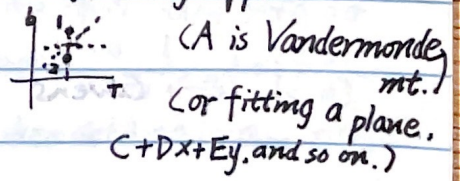 b
1
2
T
(A is Vandermonde
mt.)
(or fitting a plane,
C+Dx+Ey, and so on.)